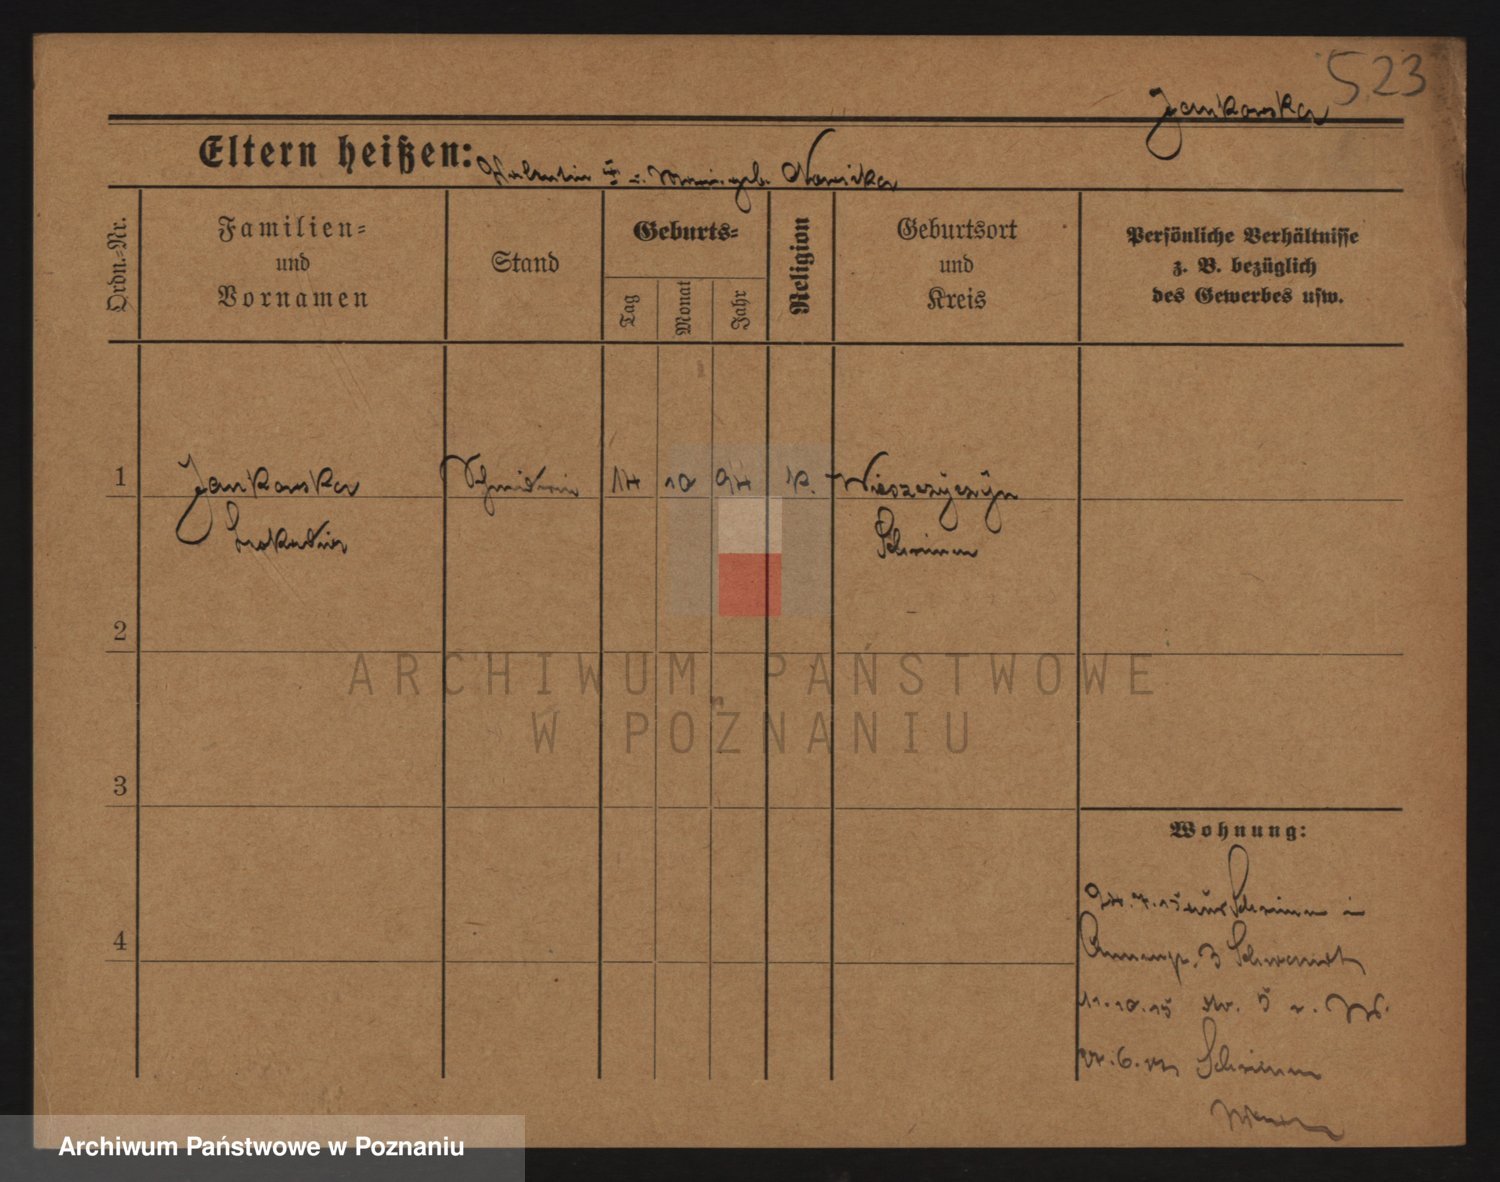 523
Jankowska
Eltern heißen: Valentin u. Marie geb. Nowicka
Ordn.-Nr.
Familien-
und
Vornamen
Stand
Geburts-
Tag
Monat
Jahr
Religion
Geburtsort
und
Kreis
Persönliche Verhältnisse
z. B. bezüglich
des Gewerbes usw.
1 Jankowska 14 10 94 k. Wieszczyczyn
Leokadia Schrimm
2
ARCHIWUM PAŃSTWOWE
W POZNANIU
3
Wohnung:
4
7.15 Schrimm in
3
11.10.15 5
6. Schrimm
Archiwum Państwowe w Poznaniu